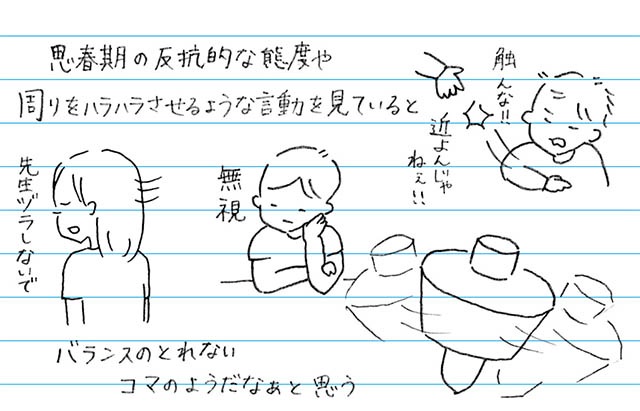 思春期の反抗的な態度や
周りをハラハラさせるような言動を見ていると
触んな!!
近よんじゃ
ねぇ!!
無視
先生ヅラしないで
バランスのとれない
コマのようだなぁと思う